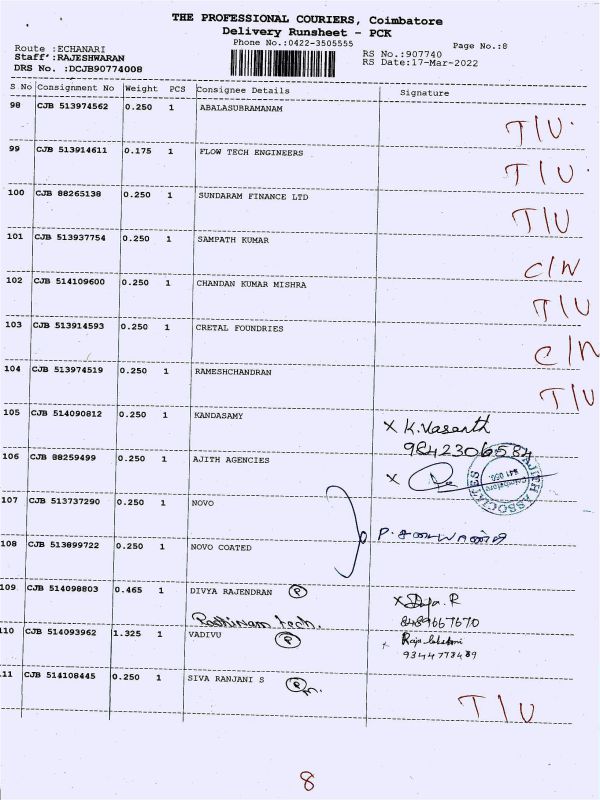 THE PROFESSIONAL COURIERS, Coimbatore
Delivery Runsheet - PCK
Phone No.:0422-3505555
Page No.:8
Route :ECHANARI
Staff :RAJESHWARAN
DRS No. :DCJB90774008
RS No.:907740
RS Date:17-Mar-2022
S No Consignment No Weight PCS Consignee Details Signature
98 CJB 513974562 0.250 1 ABALASUBRAMANAM T/U
99 CJB 513914611 0.175 1 FLOW TECH ENGINEERS T/U
100 CJB 88265138 0.250 1 SUNDARAM FINANCE LTD T/U
101 CJB 513937754 0.250 1 SAMPATH KUMAR C/N
102 CJB 514109600 0.250 1 CHANDAN KUMAR MISHRA T/U
103 CJB 513914593 0.250 1 CRETAL FOUNDRIES C/N
104 CJB 513974519 0.250 1 RAMESHCHANDRAN T/U
105 CJB 514090812 0.250 1 KANDASAMY X K.Vasanth
9842306584
106 CJB 88259499 0.250 1 AJITH AGENCIES X
AJITH ASSOCIATES
Coimbatore
641 050.
107 CJB 513737290 0.250 1 NOVO
108 CJB 513899722 0.250 1 NOVO COATED
109 CJB 514098803 0.465 1 DIVYA RAJENDRAN P X Divya. R
8489667670
110 CJB 514093962 1.325 1 VADIVU P
9344773489
111 CJB 514108445 0.250 1 SIVA RANJANI S P T/U
8